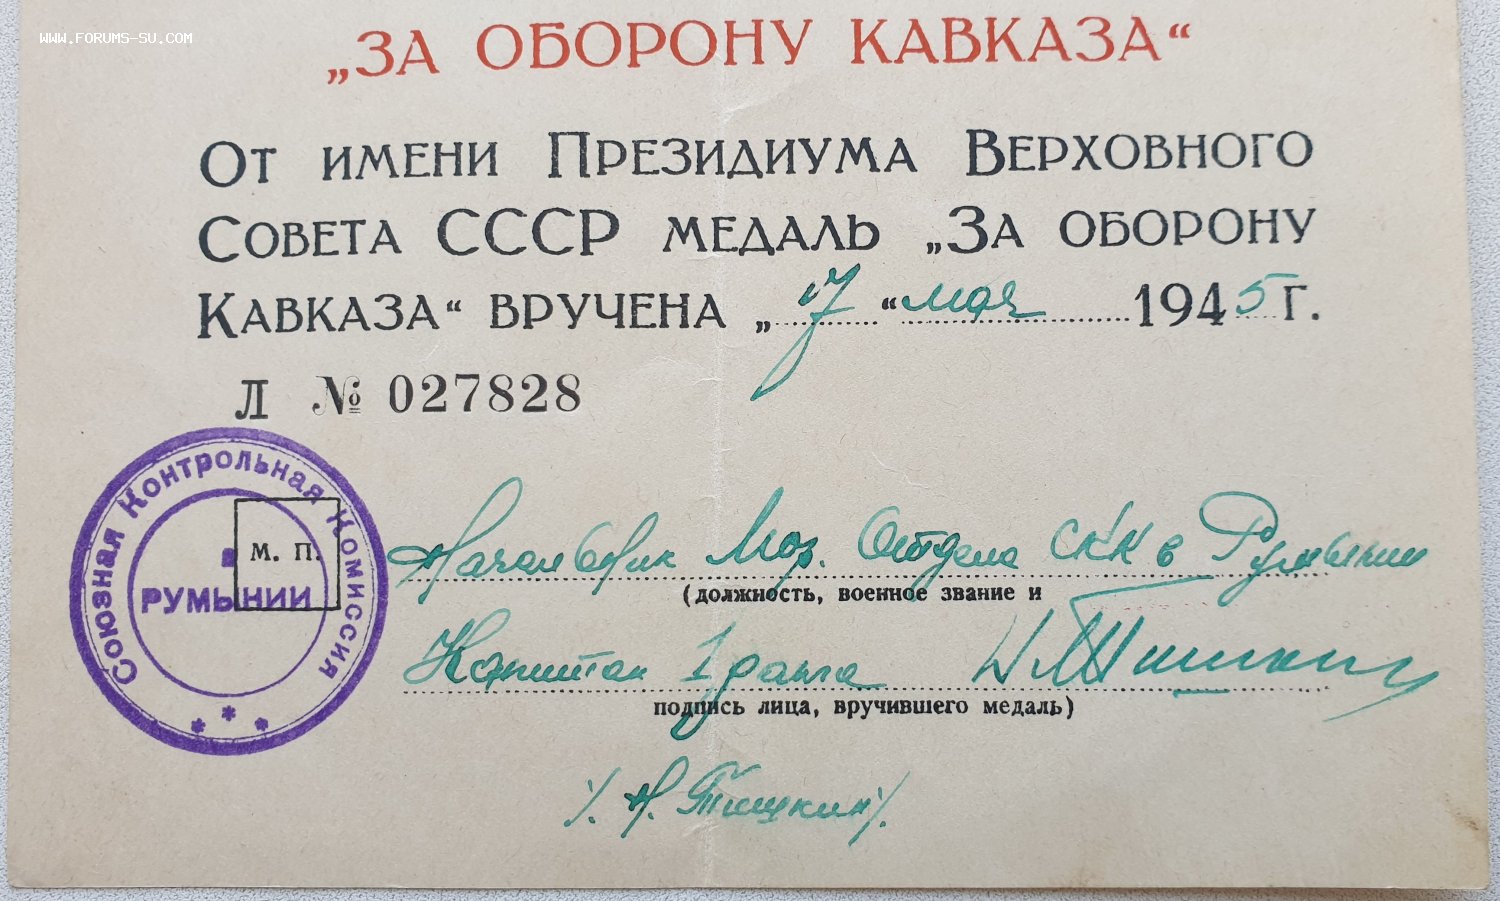 WWW.FORUMS-SU.COM
„ЗА ОБОРОНУ КАВКАЗА“
От имени Президиума Верховного
Совета СССР медаль „За оборону
Кавказа“ вручена „7“ мая 1945 г.
Л № 027828
Союзная Контрольная Комиссия
в
РУМЫНИИ
* * *
М. П.
Начальник Мор. Отдела СКК в Румынии
(должность, военное звание и
Капитан 1 ранга
подпись лица, вручившего медаль)
/. Н. Тищкин/.